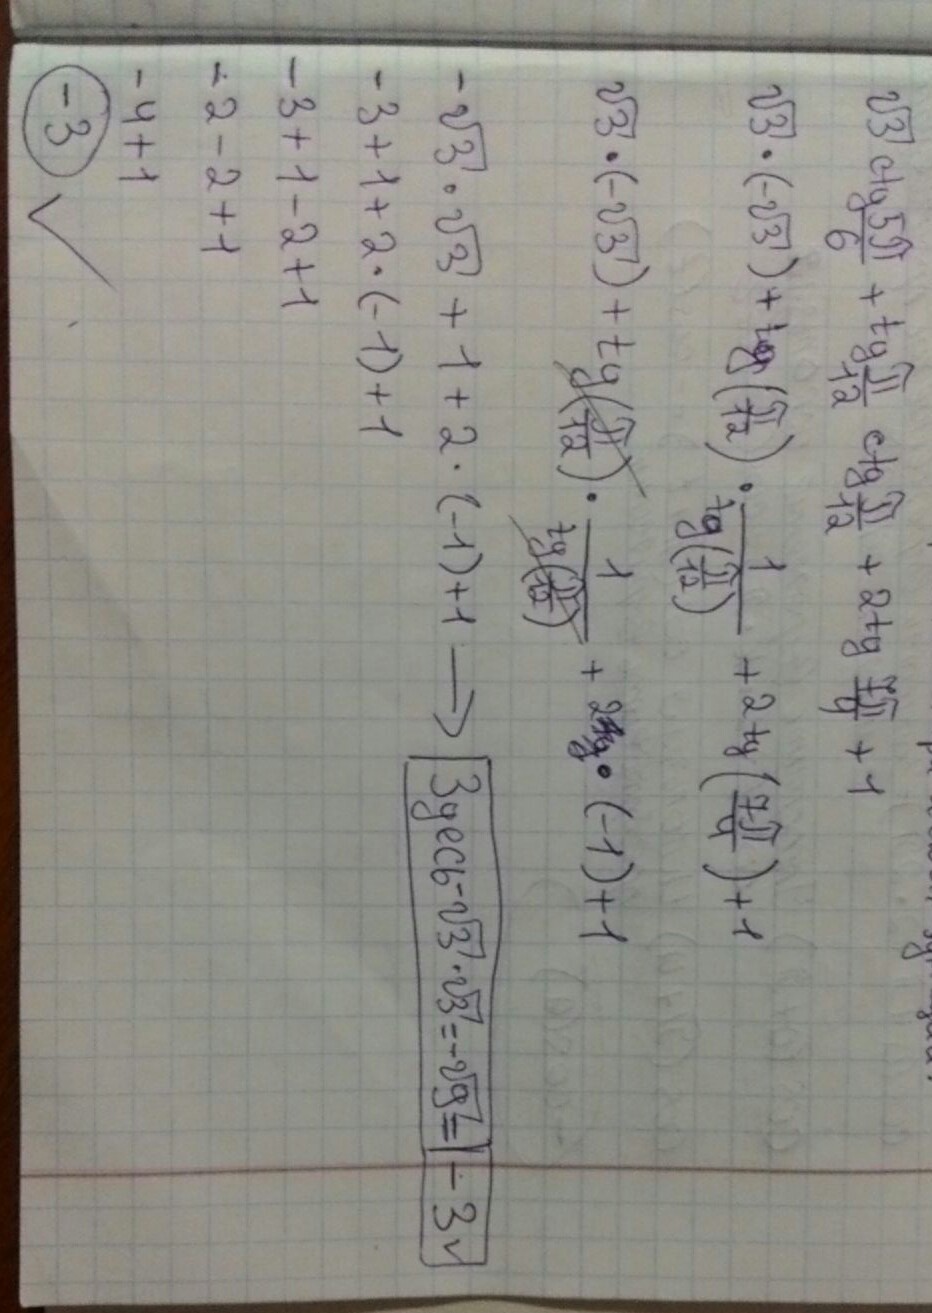 √3 ctg 5π/6 + tg π/12 ctg π/12 + 2tg 7π/4 + 1
√3 · (-√3) + tg (π/12) · 1/tg(π/12) + 2tg (7π/4) + 1
√3 · (-√3) + tg (π/12) · 1/tg(π/12) + 2 · (-1) + 1
-√3 · √3 + 1 + 2 · (-1) + 1 → Здесь -√3 · √3 = -√9 = -3 ✓
-3 + 1 + 2 · (-1) + 1
-3 + 1 - 2 + 1
-2 - 2 + 1
-4 + 1
-3 ✓